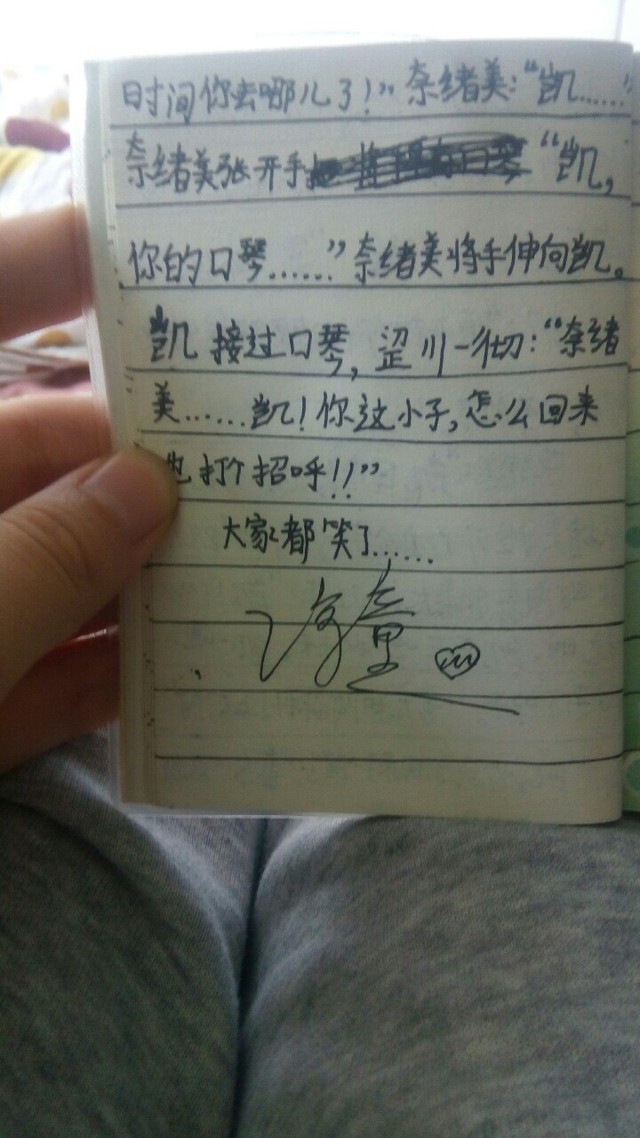 时间你去哪儿了！”奈绪美：“凯……”
奈绪美张开手“凯，
你的口琴……”奈绪美将手伸向凯。
凯接过口琴，涩川一彻：“奈绪
美……凯！你这小子，怎么回来
也打个招呼！！”
大家都笑了……